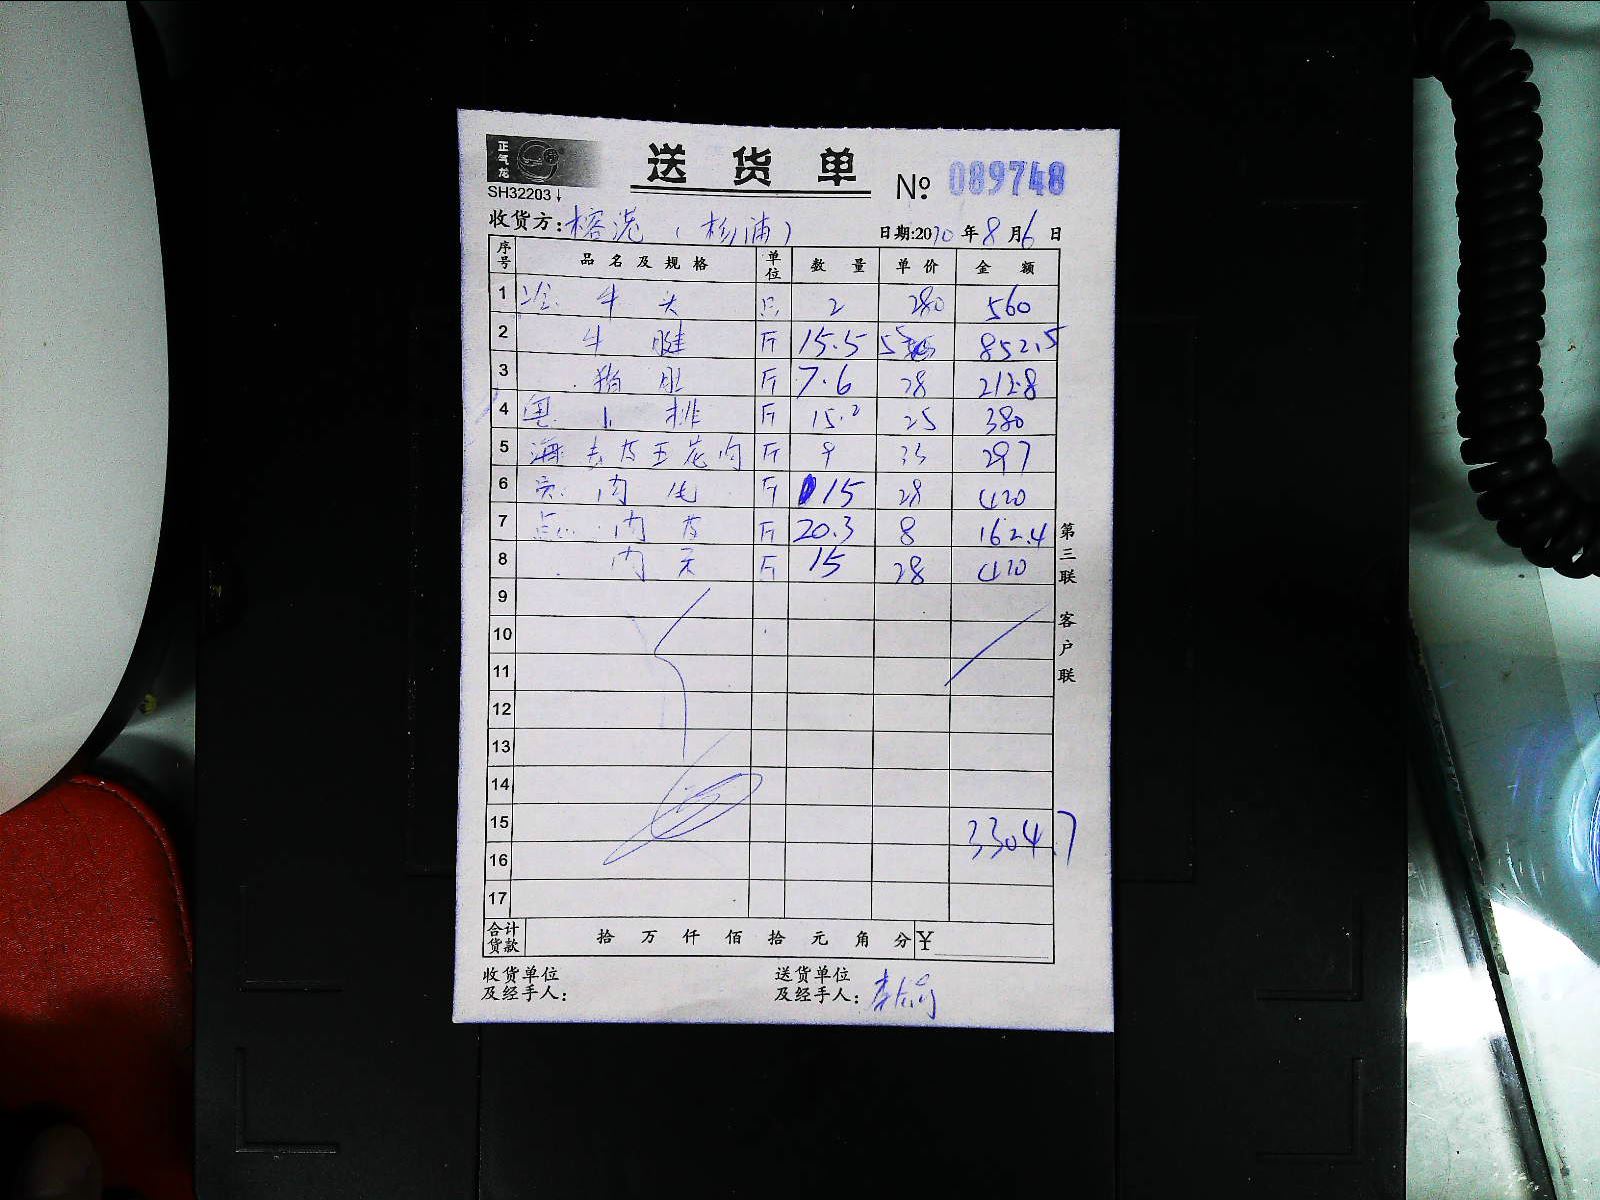 正气龙
送货单
№ 089748
SH32203↓
收货方:榕港(杨浦) 日期:2010年8月6日
序号 品名及规格 单位 数量 单价 金额
1 牛头 只 2 280 560
2 牛腱 斤 15.5 55 852.5
3 猪肚 斤 7.6 28 212.8
4 小排 斤 15.2 25 380
5 海 去皮五花肉 斤 9 33 297
6 肉 斤 15 28 420
7 点心 肉皮 斤 20.3 8 162.4
8 肉 斤 15 28 420
9
10
11
12
13
14
15 3304.7
16
17
合计货款 拾万仟佰拾元角分¥
收货单位及经手人:
送货单位及经手人:
第三联 客户联